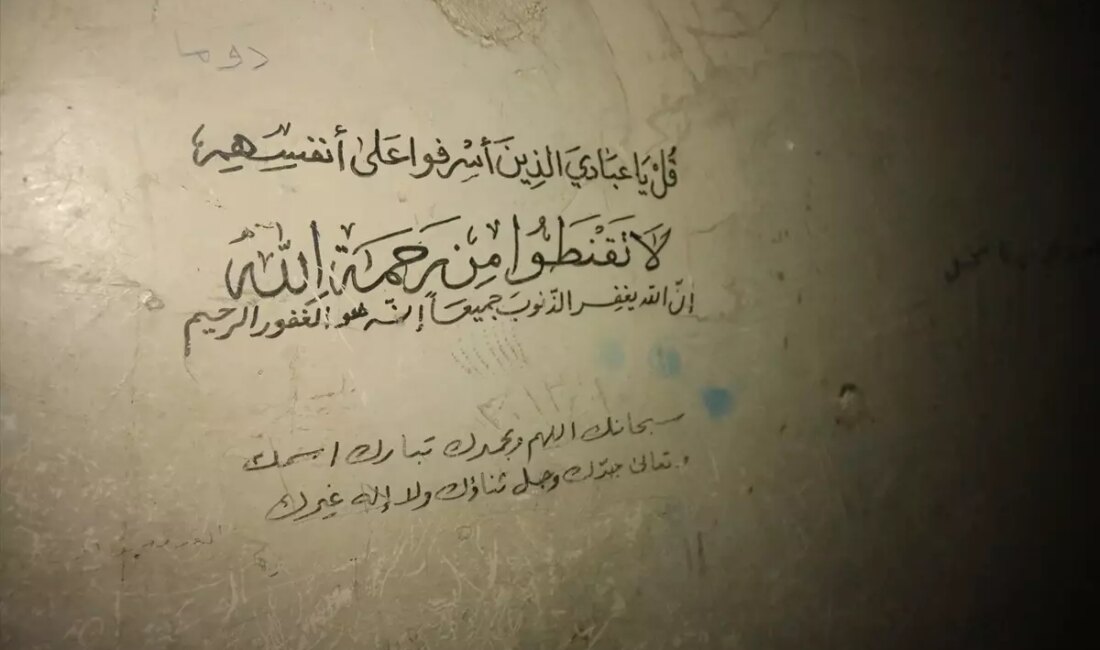 دوما
قُلْ يَا عِبَادِيَ الذِينَ أَسْرفوا عَلىٰ أنفسِهِم
لَا تَقْنَطُوا مِن رَحمَةِ اللّٰه
إنّ الله يغفِر الذّنوبَ جميعاً إنّه هو الغفور الرحيم
سبحانك اللهم وبحمدك تبارك اسمك
وتعالى جدّك وجل ثناؤك ولا إله غيرك